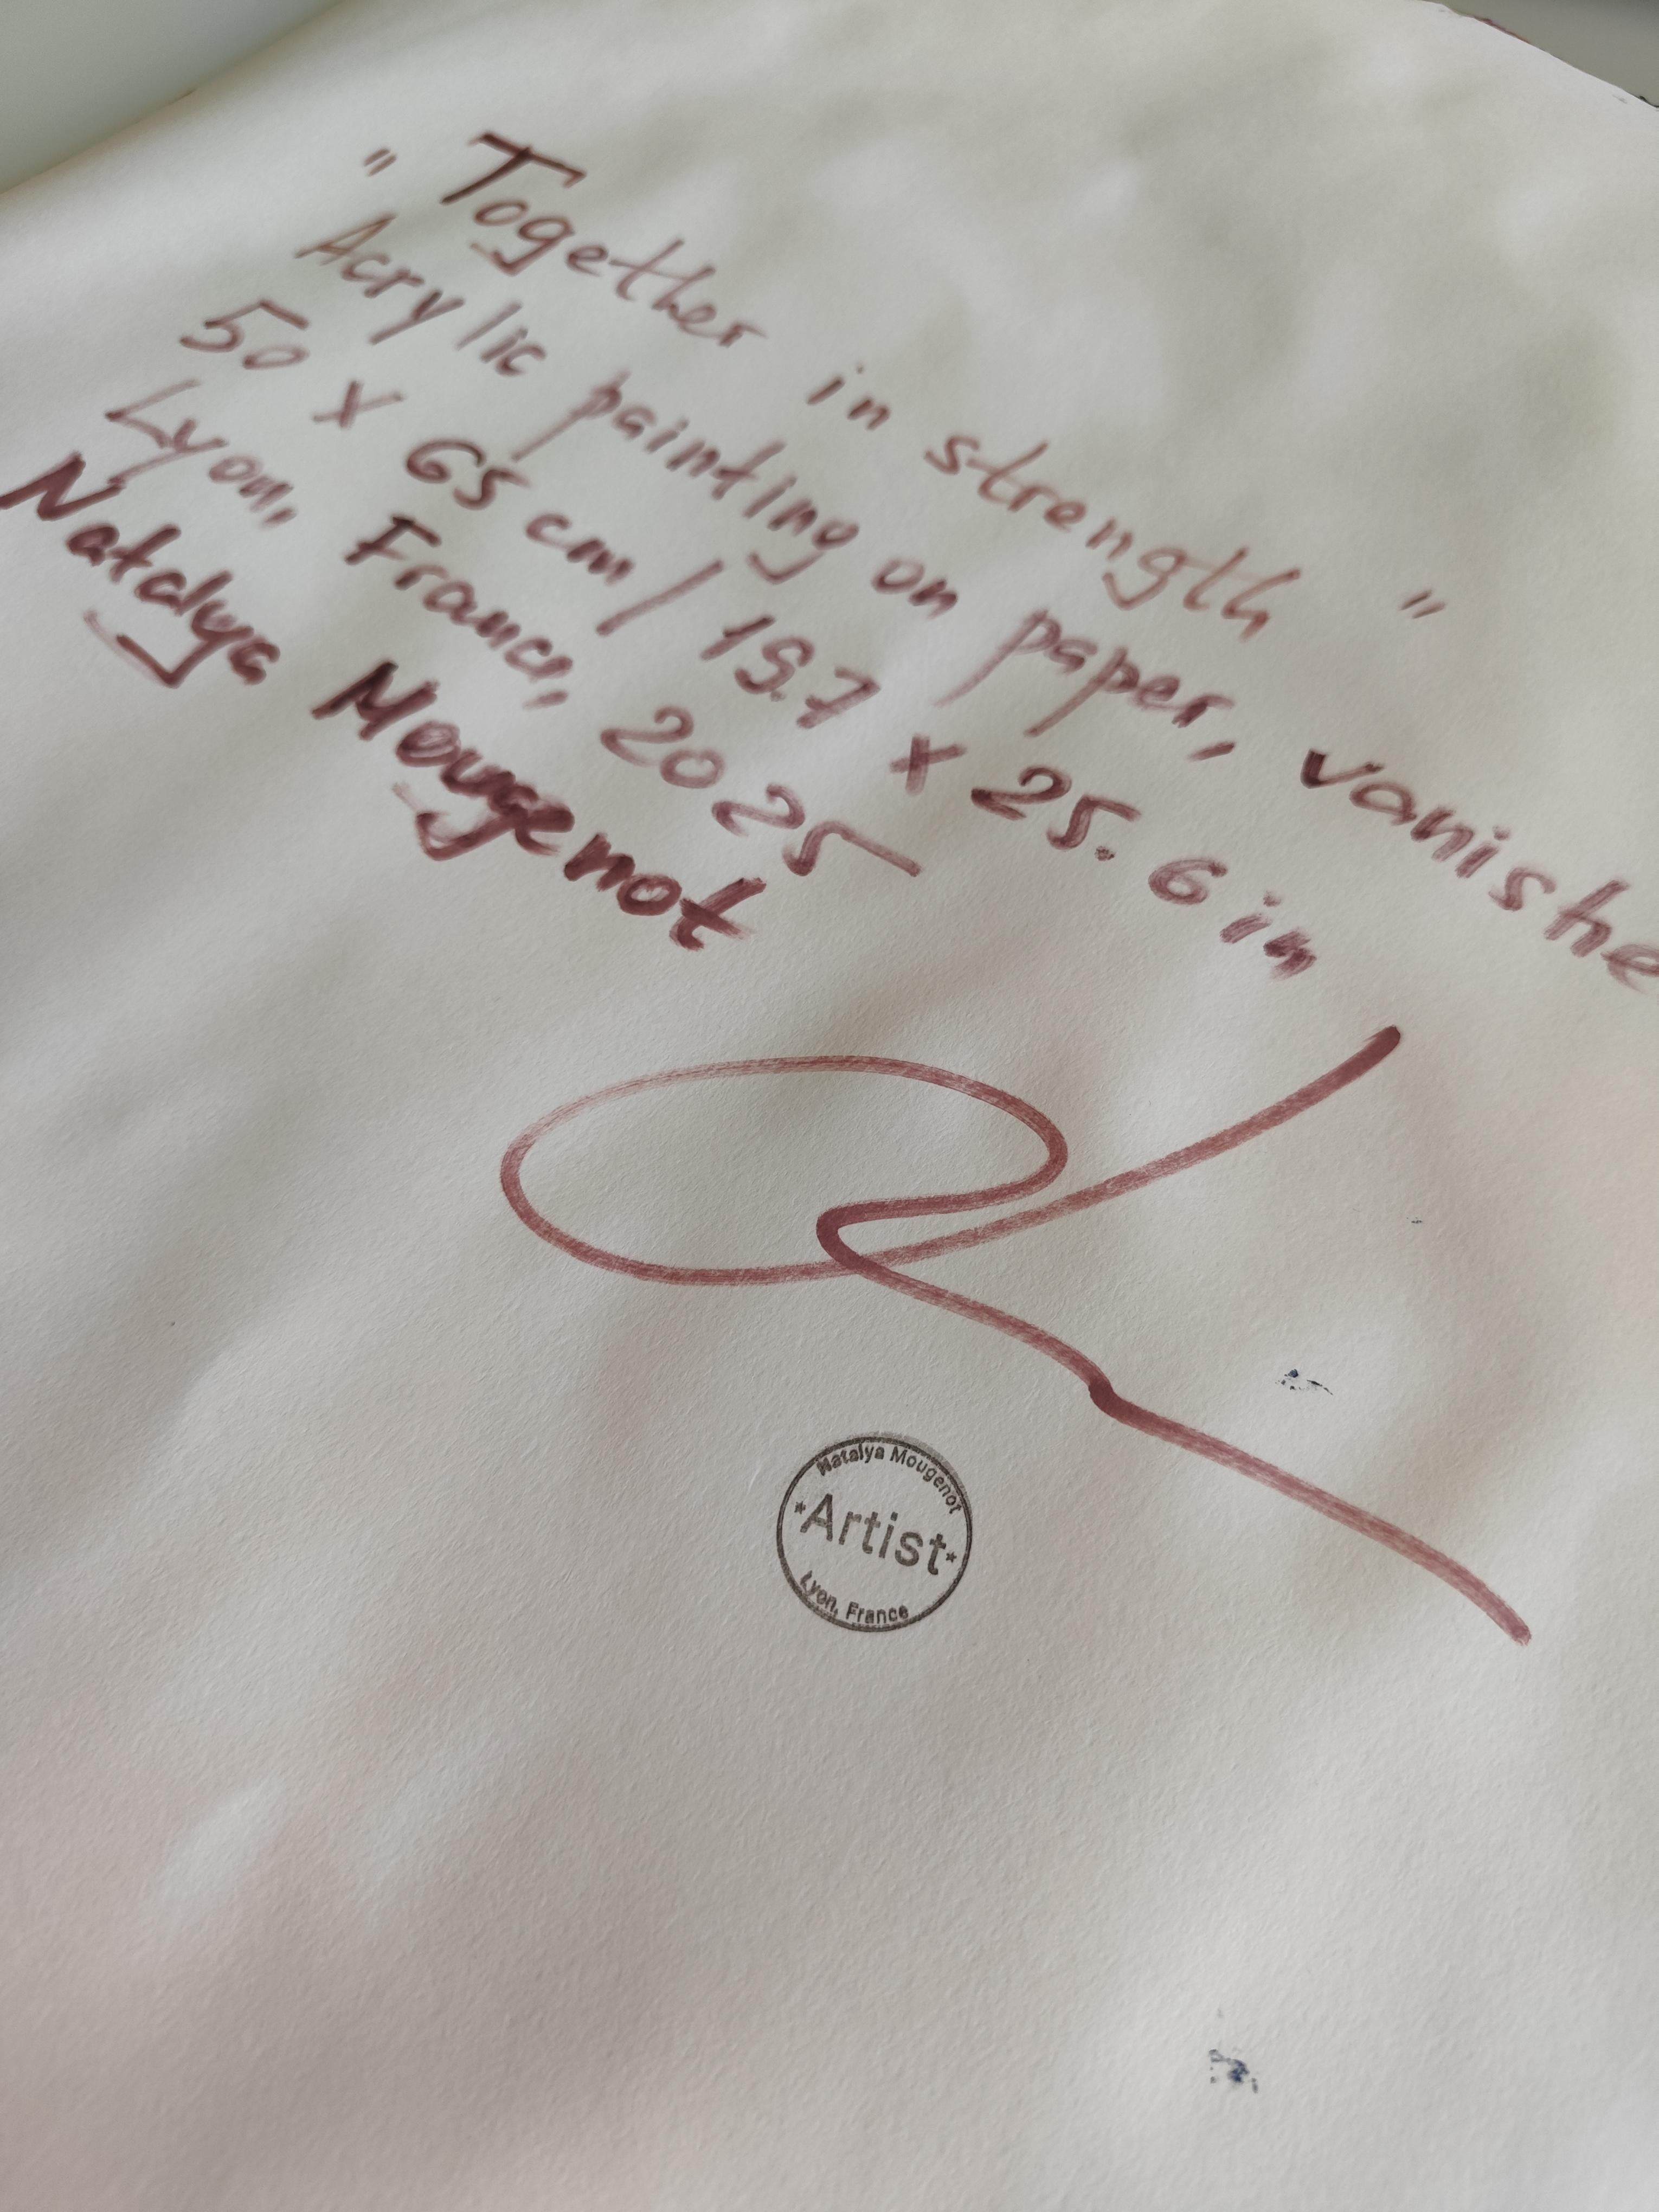 "Together in strength"
Acrylic painting on paper, vanishe
50 x 65 cm / 19.7 x 25.6 in
Lyon, France, 2025
Natalya Mougenot
Natalya Mougenot
*Artist*
Lyon, France